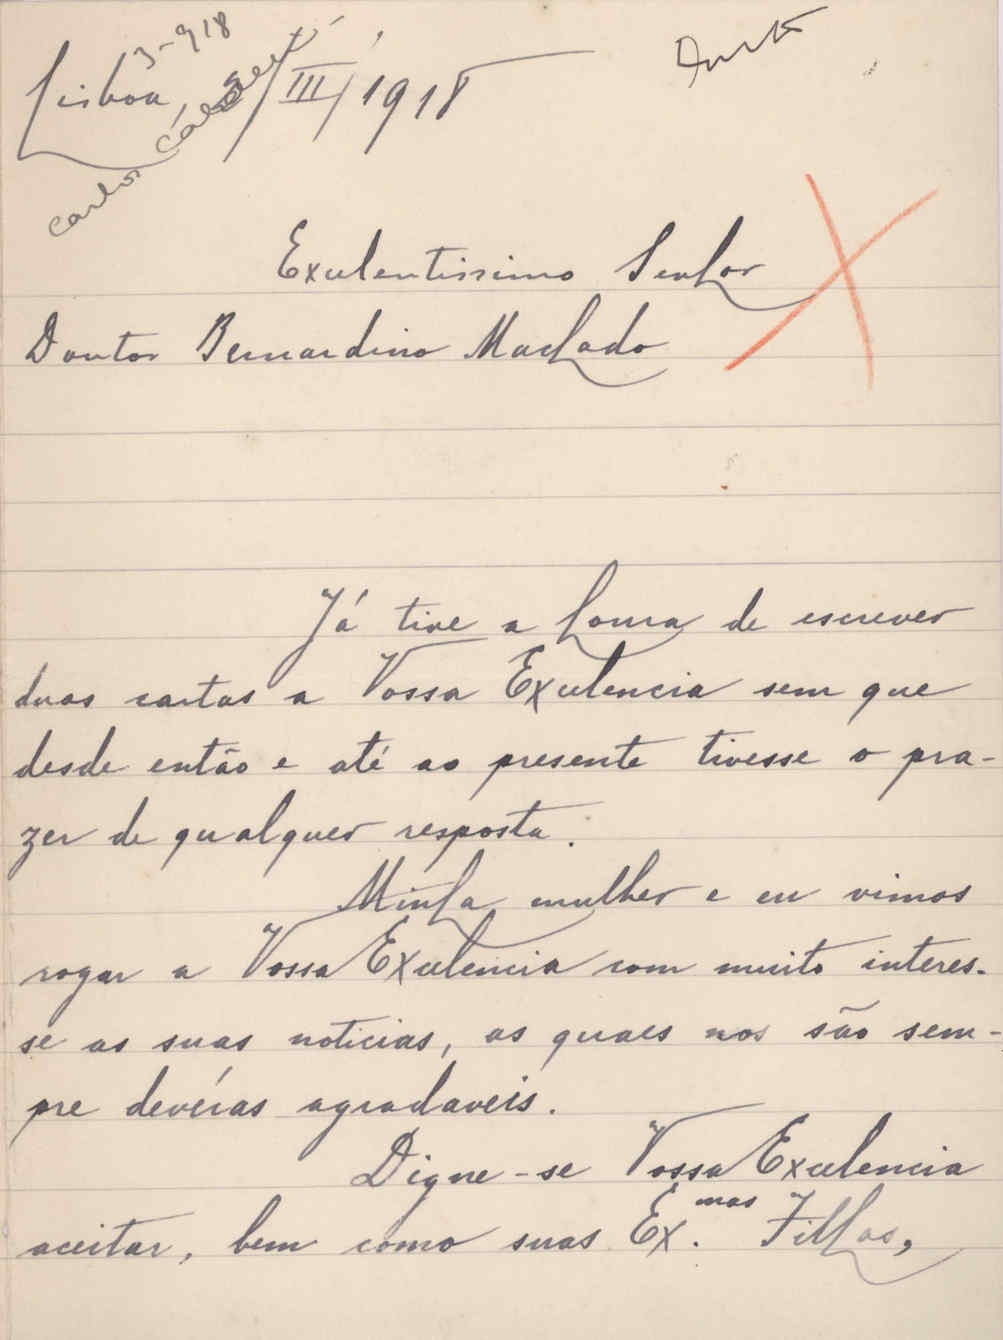 3-918
Lisboa, /III/1918
Carlos
Exulentissimo Senhor
Doutor Bernardino Machado
Já tive a honra de escrever
duas cartas a Vossa Exulencia sem que
desde então e até ao presente tivesse o pra-
zer de qualquer resposta.
Minha mulher e eu vimos
rogar a Vossa Exulencia com muito interes-
se as suas noticias, as quaes nos são sem-
pre devéras agradaveis.
Digne-se Vossa Exulencia
aceitar, bem como suas Ex.mas Filhas,